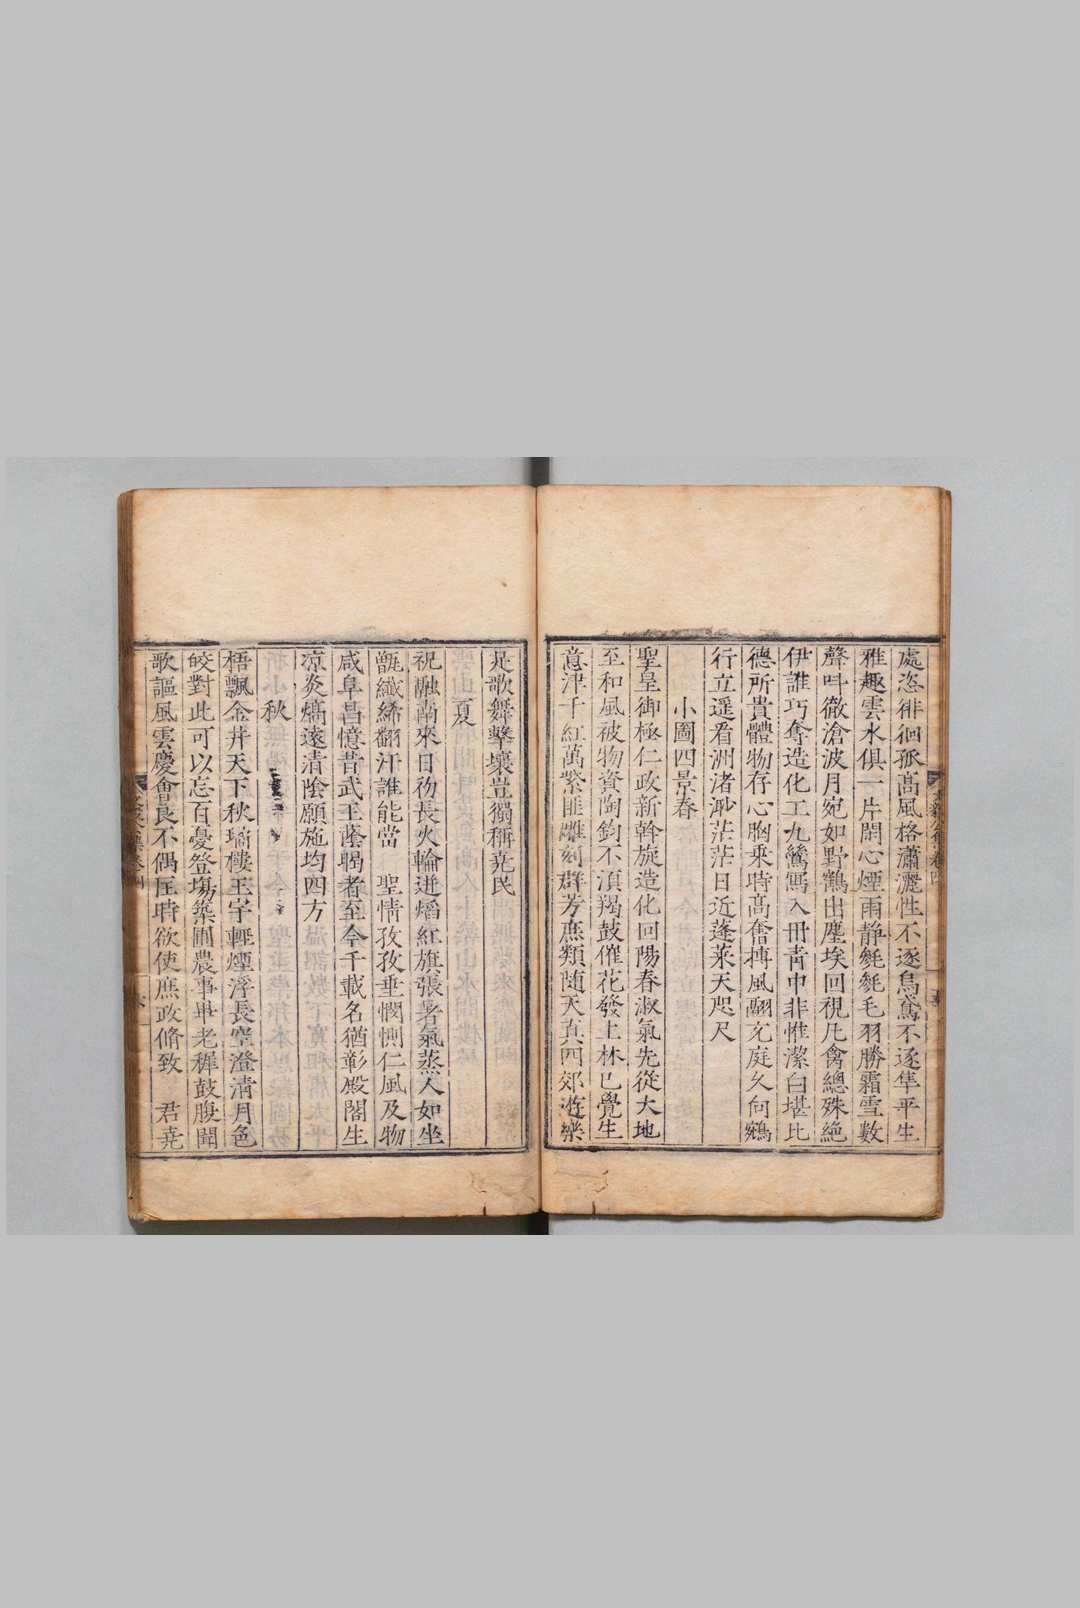 處恣徘徊孤髙風格瀟灑性不逐鳬鴦不逐隼平生
雅趣雲水俱一片閒心煙雨静毿毿毛羽勝霜雪數
聲呌徹滄波月宛如野鶴出塵埃回視凡禽總殊絶
伊誰巧奪造化工九鷥寫入冊青中非惟潔白堪比
德所貴體物存心胸乘時髙奮摶風翮充庭久佇鵷
行立遥看洲渚渺茫茫日近蓬萊天咫尺
小圖四景春
聖皇御極仁政新斡旋造化回陽春淑氣先從大地
至和風被物資陶鈞不湏羯鼓催花發上林已覺生
意津千紅萬紫匪雕刻群芳庶類随天真四郊遊樂
是歌舞擊壤豈獨稱堯民
夏
祝融南來日彷長火輪迸熖紅旗張暑氣蒸人如坐
甑纖絺翻汗誰能當 聖情孜孜垂憫惻仁風及物
咸阜昌憶昔武王蔭暍者至今千載名猶彰殿閣生
凉炎熇遠清陰願施均四方
秋
梧飄金井天下秋瓊樓玉宇輕煙浮長空澄清月色
皎對此可以忘百憂登塲築圃農事畢老穉鼓腹聞
歌謳風雲慶會良不偶匡時欲使庶政脩致 君堯